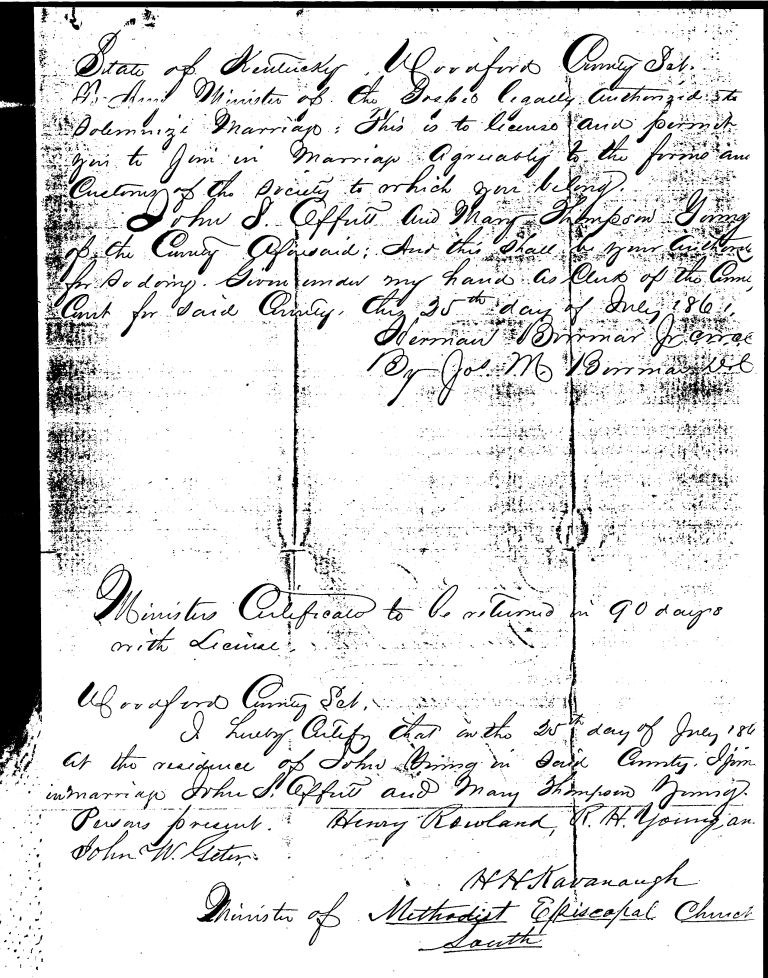 State of Kentucky, Woodford County Sct.
To Any Minister of the Gosbel legally Authorized to
Solemnize Marriage: This is to license and permit
you to Join in Marriage Agreeably to the forms and
Customs of the society to which you belong.
John S. Offutt And Mary Thompson Young
of the County Aforesaid; And this shall be your Author
for so doing. Given under my hand as Clerk of the Coun
Court for said County, this 25th day of July 1861.
Herman Bowmar Jr
By Jos. M Bowmar
Ministers Certificate to be returned in 90 days
with License.
Woodford County Sct.
I hereby Certify that on the 25th day of July 186
At the residence of John in said County. I join
in marriage John S. Offutt and Mary Thompson Young.
Persons present. Henry Rowland, R. H. Young, an
John W.
H H Kavanaugh
Minister of Methodist Episcopal Church
South